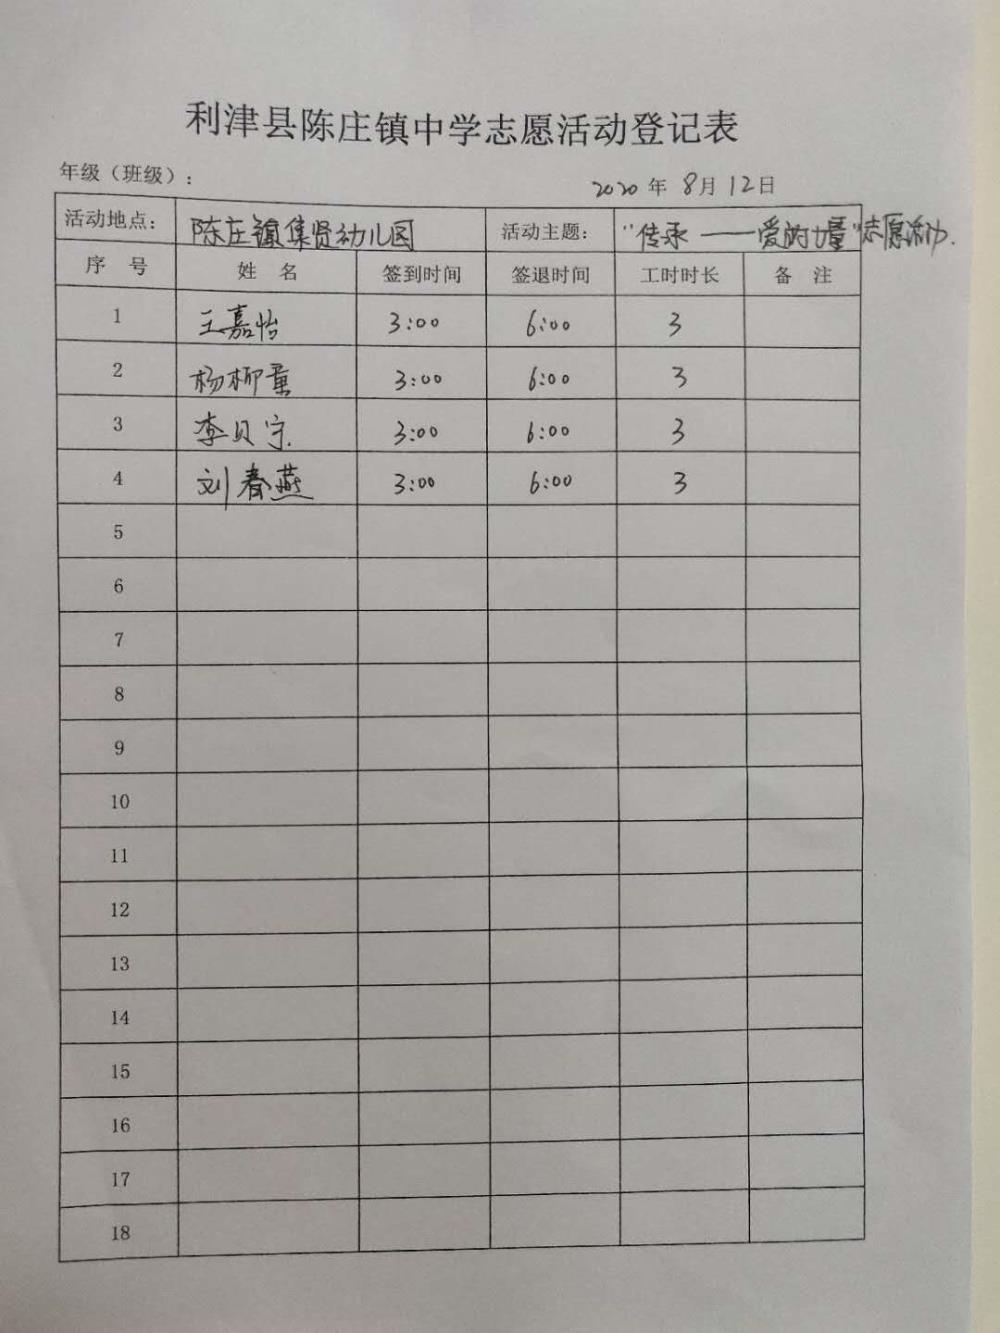 利津县陈庄镇中学志愿活动登记表
年级（班级）：
2020 年 8月 12日
活动地点： 陈庄镇集贤幼儿园 活动主题： "传承——爱的力量"志愿活动.
序 号 姓 名 签到时间 签退时间 工时时长 备 注
1 王嘉怡 3:00 6:00 3
2 杨柳童 3:00 6:00 3
3 李贝宁 3:00 6:00 3
4 刘春燕 3:00 6:00 3
5
6
7
8
9
10
11
12
13
14
15
16
17
18